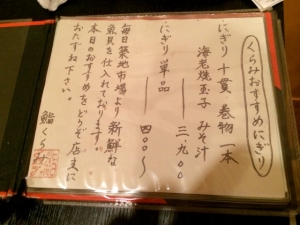 くらみおすすめにぎり
にぎり十貫 巻物一本
海老焼玉子 みそ汁
三.九〇〇
にぎり単品
四〇〇〜
毎日築地市場より新鮮な
魚貝を仕入れております。
本日のおすすめをどうぞ店主に
おたずね下さい。
鮨くらみ